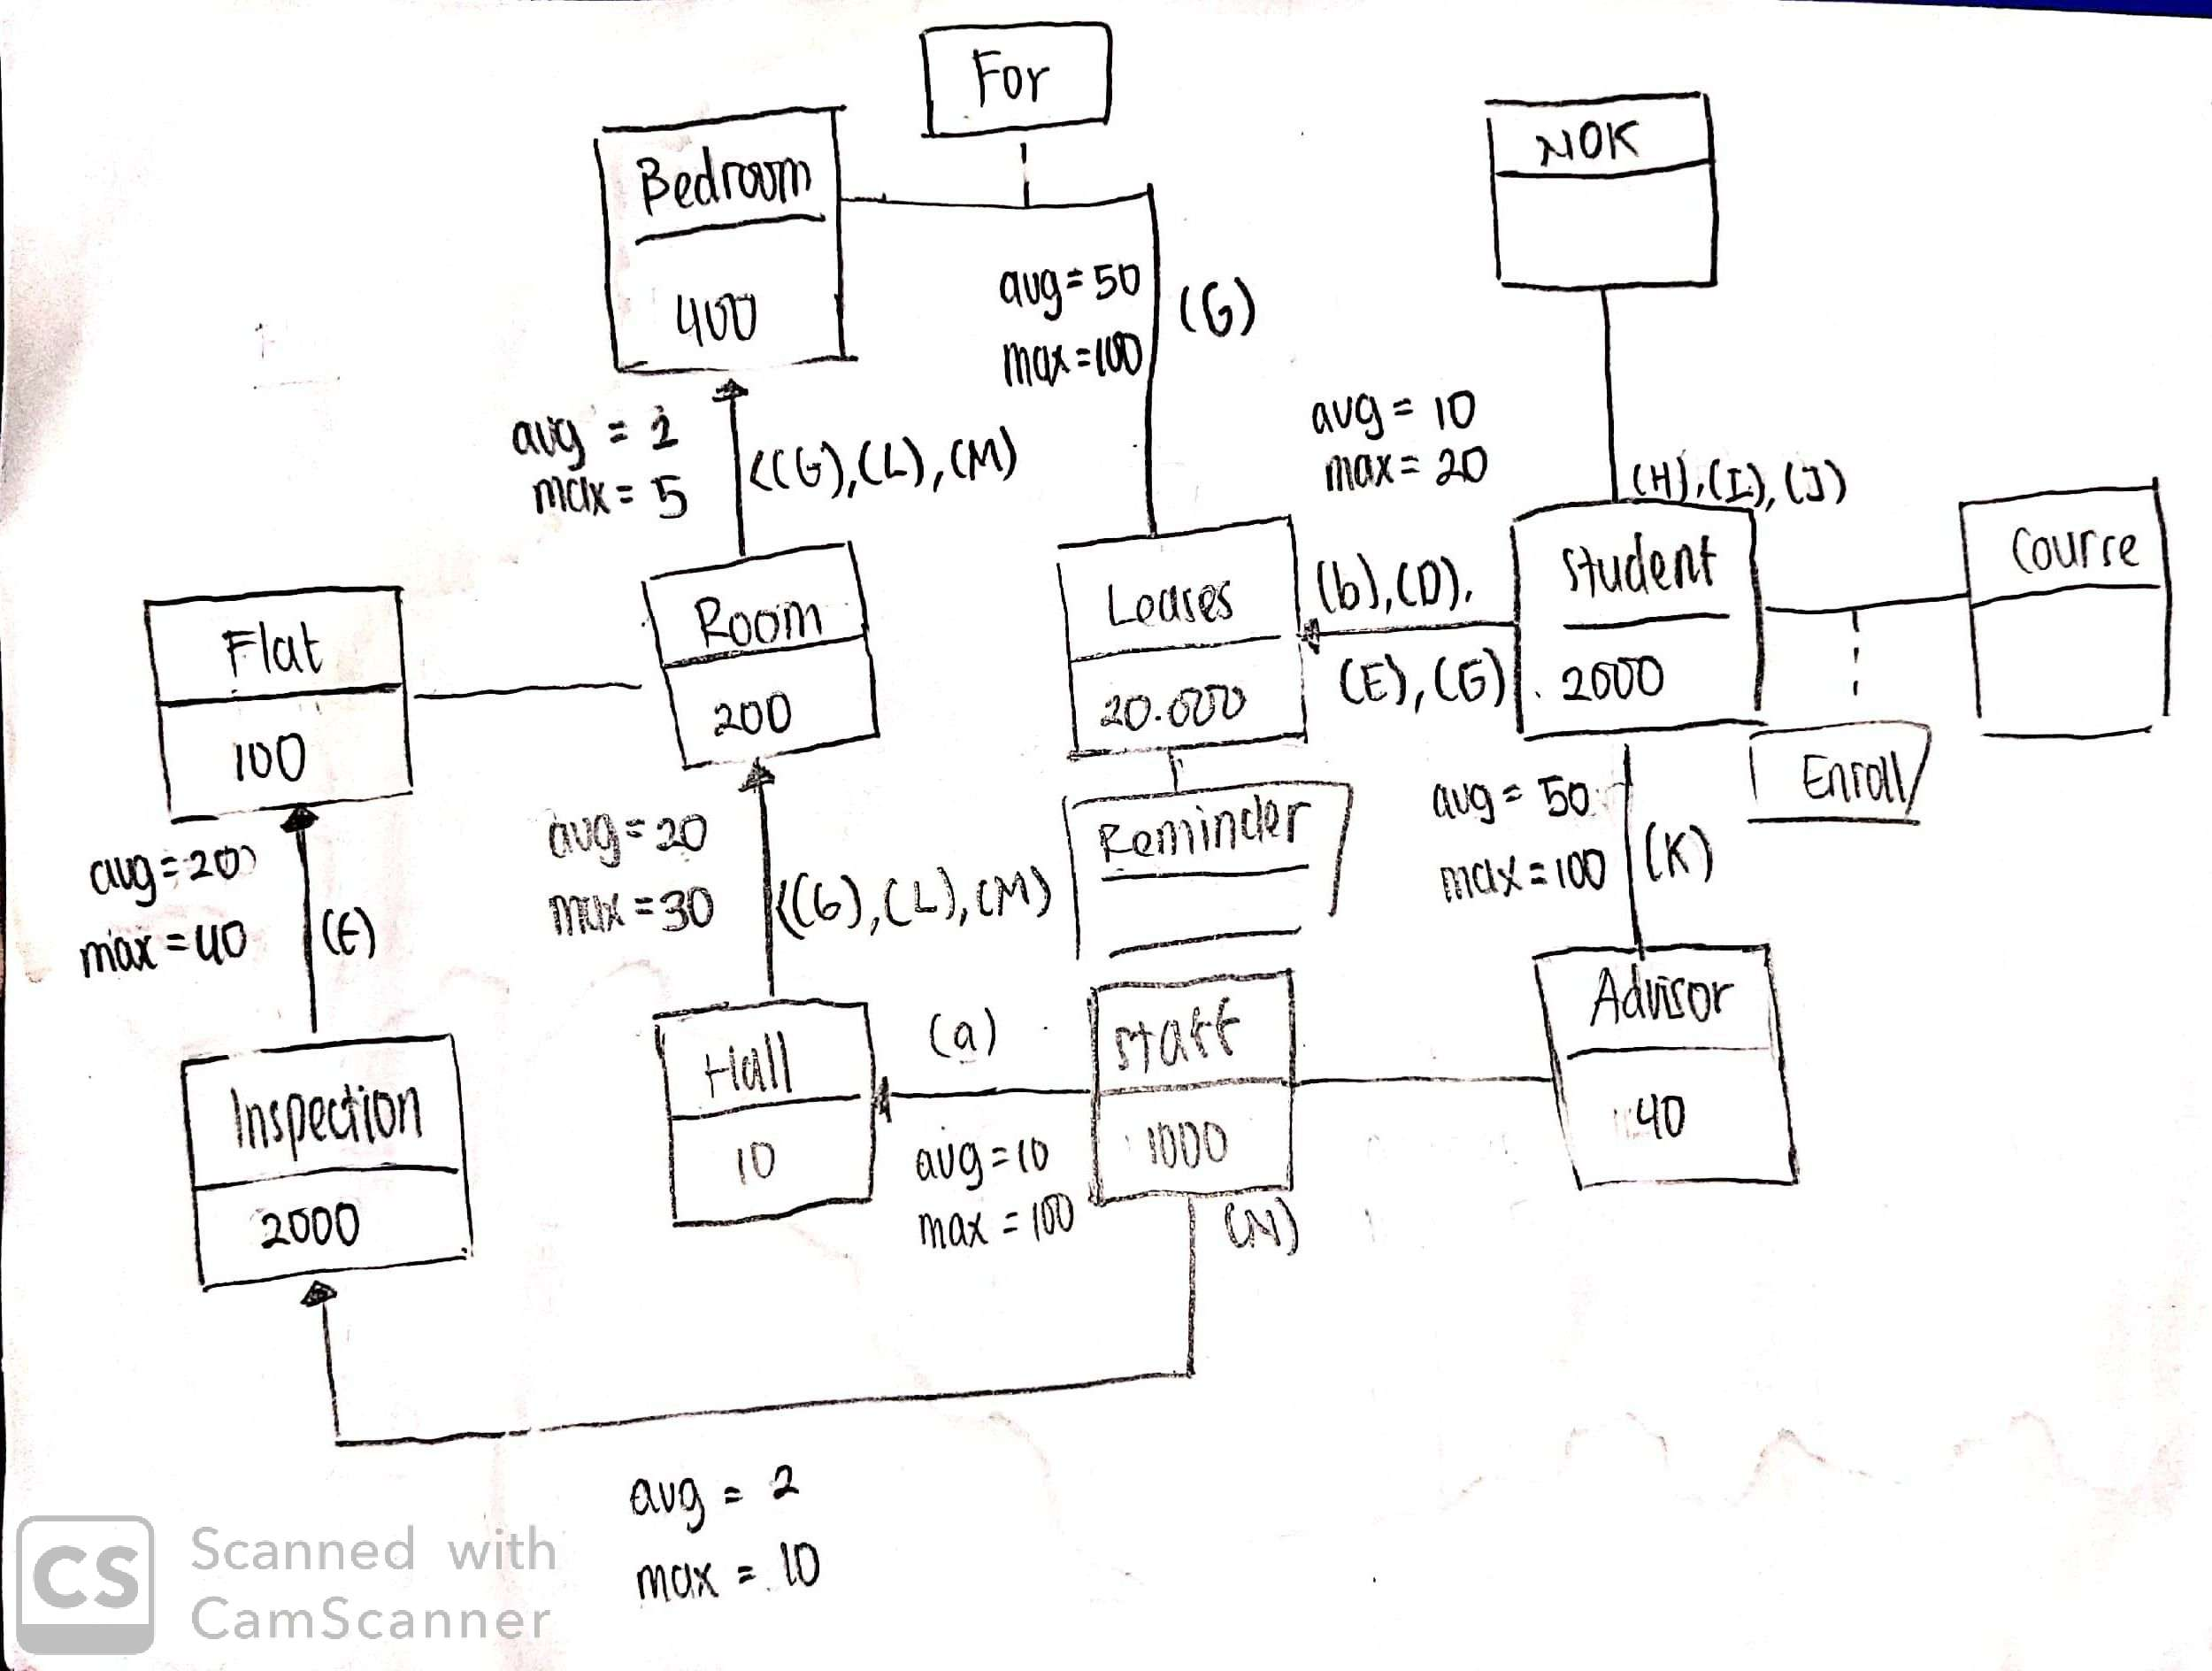 For
Bedroom
400
NOK
avg = 50
max = 100
(G)
avg = 2
max = 5
((G), (L), (M)
avg = 10
max = 20
(H), (I), (J)
Flat
100
Room
200
Leases
20.000
(b), (D),
(E), (G)
Student
2000
Course
Enroll
avg = 20
max = 40
(E)
avg = 20
max = 30
((G), (L), (M)
Reminder
avg = 50
max = 100
(K)
Inspection
2000
Hall
10
(a)
avg = 10
max = 100
Staff
1000
(N)
Advisor
40
avg = 2
max = 10
CS
Scanned with
CamScanner